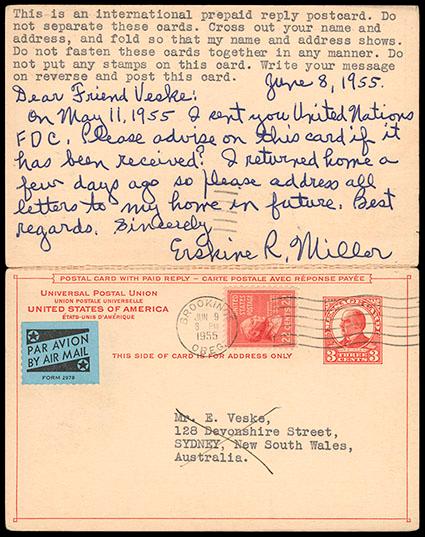 This is an international prepaid reply postcard. Do
not separate these cards. Cross out your name and
address, and fold so that my name and address shows.
Do not fasten these cards together in any manner. Do
not put any stamps on this card. Write your message
on reverse and post this card.
June 8, 1955.
Dear Friend Veske:
On May 11, 1955 I sent you United Nations
FDC. Please advise on this card if it
has been received? I returned home a
few days ago so please address all
letters to my home in future. Best
regards. Sincerely
Erskine R. Miller
POSTAL CARD WITH PAID REPLY – CARTE POSTALE AVEC RÉPONSE PAYÉE
UNIVERSAL POSTAL UNION
UNION POSTALE UNIVERSELLE
UNITED STATES OF AMERICA
ÉTATS-UNIS D'AMÉRIQUE
PAR AVION
BY AIR MAIL
FORM 2978
THIS SIDE OF CARD IS FOR ADDRESS ONLY
BROOKINGS
JUN 9
PM
1955
OREG.
22 CENTS 22
3 THREE CENTS 3
Mr. E. Veske,
128 Devonshire Street,
SYDNEY, New South Wales,
Australia.